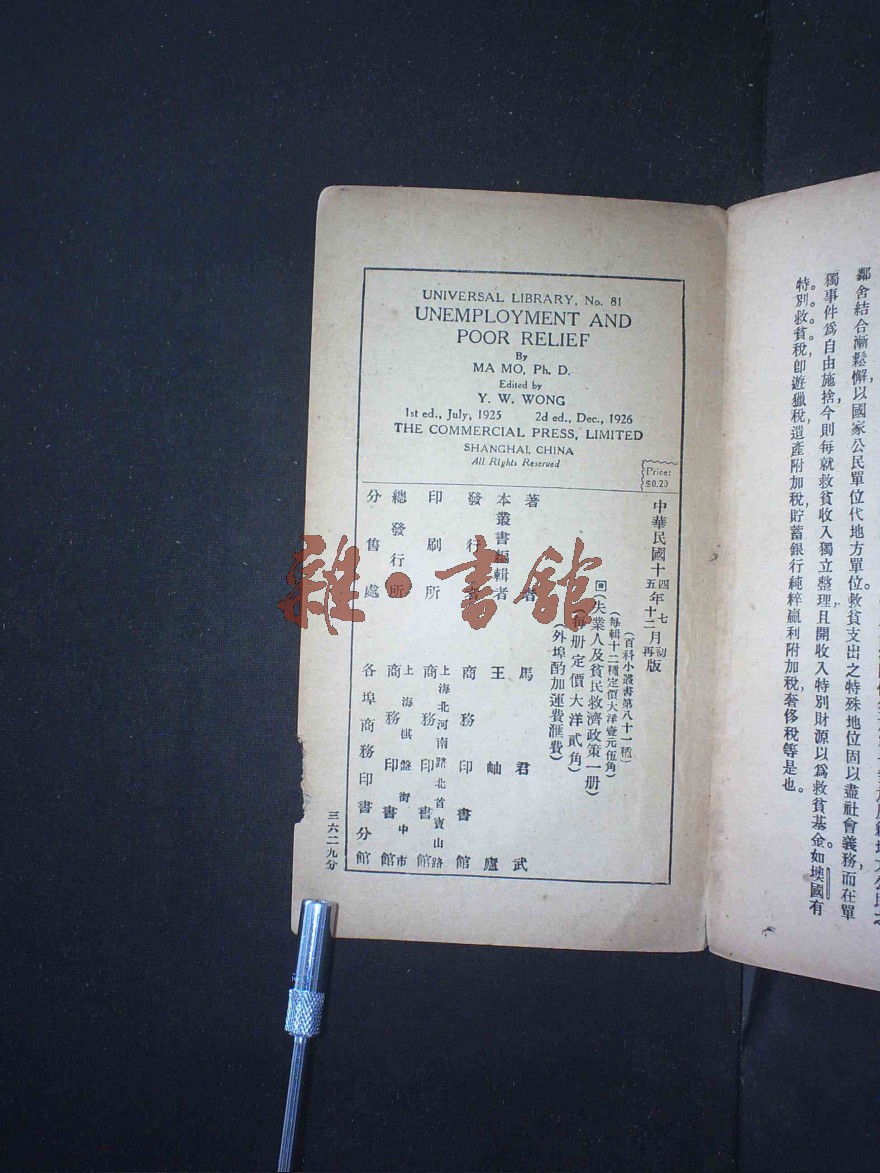 UNIVERSAL LIBRARY, No. 81
UNEMPLOYMENT AND
POOR RELIEF
By
MA MO, Ph. D.
Edited by
Y. W. WONG
1st ed., July, 1925 2d ed., Dec., 1926
THE COMMERCIAL PRESS, LIMITED
SHANGHAI, CHINA
All Rights Reserved
Price:
$0.20
中華民國十四年七月初版
五 十二 再
(百科小叢書第八十一種)
(每輯十二種定價大洋壹元伍角)
(失業人及貧民救濟政策一册)
(每册定價大洋貳角)
(外埠酌加運費滙費)
著者 馬君武
本叢書編輯者 王岫廬
發行者 商務印書館
印刷所 上海北河南路北首寶山路 商務印書館
總發行所 上海棋盤街中市 商務印書館
分售處 各埠商務印書分館
三六二九分
雜·書館
鄰舍結合漸鬆懈,以國家公民單位代地方單位。救貧支出之特殊地位固以盡社會義務,而在單
獨事件爲自由施捨,今則每就救貧收入獨立整理,且開收入特別財源以爲救貧基金。如墺國有
特別救貧稅,卽遊獵稅,遺產附加稅,貯蓄銀行純粹贏利附加稅,奢侈稅等是也。